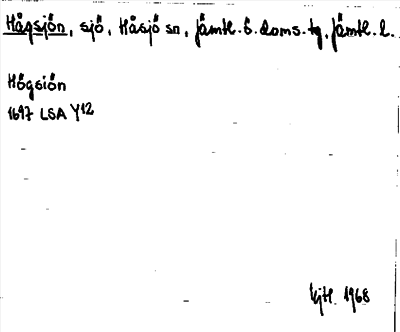 Högsjön, sjö, Håsjö sn, Jämtl. ö. doms. tg, Jämtl. l.
Högsiön
1697 LSA Y12
1968